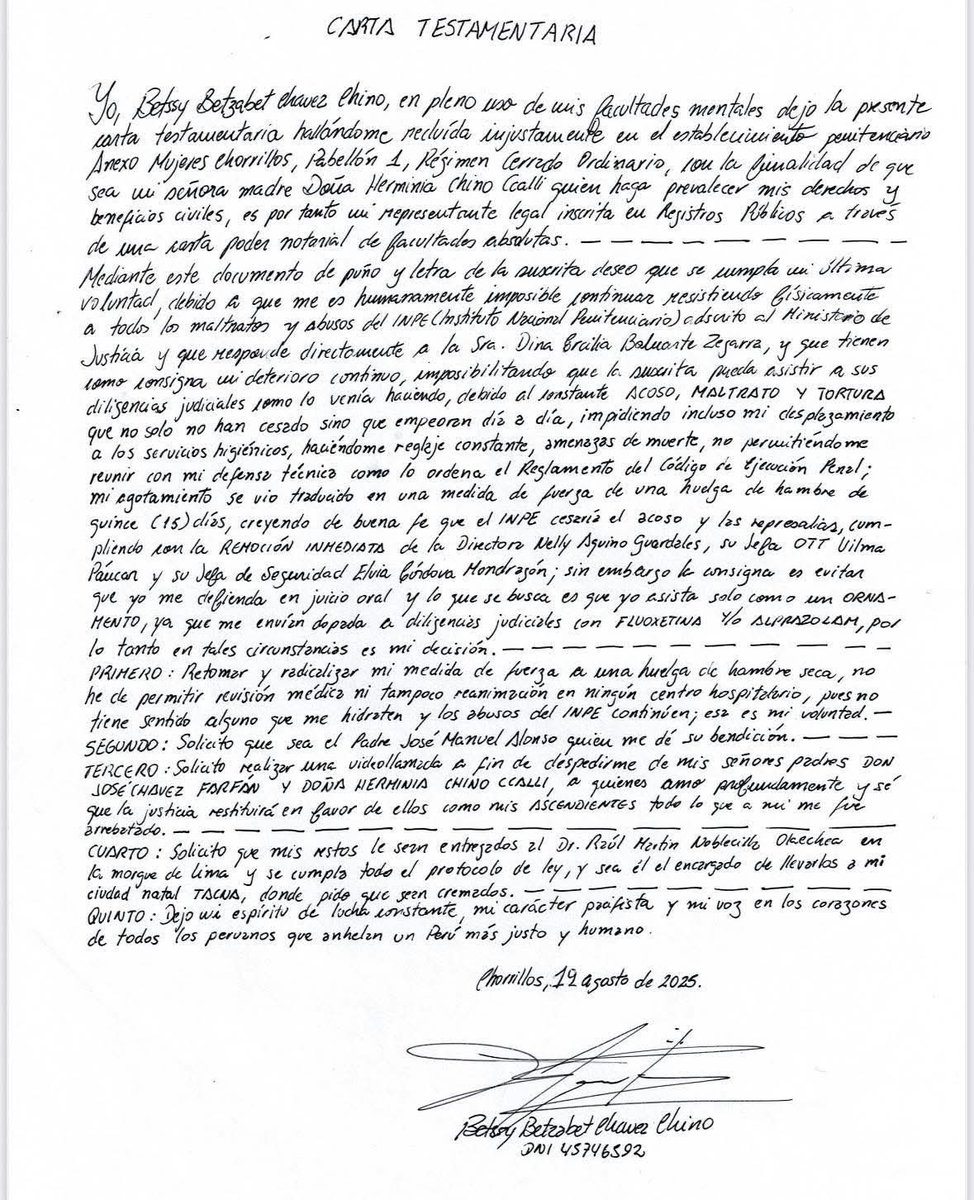 CARTA TESTAMENTARIA
Yo, Betssy Betzabet Chavez Chino, en pleno uso de mis facultades mentales dejo la presente
carta testamentaria hallándome recluída injustamente en el establecimiento penitenciario
Anexo Mujeres Chorrillos, Pabellón 1, Régimen Cerrado Ordinario, con la finalidad de que
sea mi señora madre Doña Herminia Chino Ccalli quien haga prevalecer mis derechos y
beneficios civiles, es por tanto mi representante legal inscrita en Registros Públicos a través
de una carta poder notarial de facultades absolutas. — — — — — — — — — — —
Mediante este documento de puño y letra de la suscrita deseo que se cumpla mi última
voluntad, debido a que me es humanamente imposible continuar resistiendo físicamente
a todos los maltratos y abusos del INPE (Instituto Nacional Penitenciario) adscrito al Ministerio de
Justicia y que responde directamente a la Sra. Dina Ercilia Boluarte Zegarra, y que tienen
como consigna mi deterioro continuo, imposibilitando que la suscrita pueda asistir a sus
diligencias judiciales como lo venía haciendo, debido al constante ACOSO, MALTRATO Y TORTURA
que no solo no han cesado sino que empeoran día a día, impidiendo incluso mi desplazamiento
a los servicios higiénicos, haciéndome reglaje constante, amenazas de muerte, no permitiéndome
reunir con mi defensa técnica como lo ordena el Reglamento del Código de Ejecución Penal;
mi agotamiento se vio traducido en una medida de fuerza de una huelga de hambre de
quince (15) días, creyendo de buena fe que el INPE cesaría el acoso y las represalias, cum-
pliendo con la REMOCIÓN INMEDIATA de la Directora Nelly Aquino Guardales, su Jefa OTT Vilma
Páucar y su Jefa de Seguridad Elvia Córdova Mondragón; sin embargo la consigna es evitar
que yo me defienda en juicio oral y lo que se busca es que yo asista solo como un ORNA-
MENTO, ya que me envían dopada a diligencias judiciales con FLUOXETINA Y/O ALPRAZOLAM, por
lo tanto en tales circunstancias es mi decisión. — — — — — — — — — — — —
PRIMERO: Retomar y radicalizar mi medida de fuerza a una huelga de hambre seca, no
he de permitir revisión médica ni tampoco reanimación en ningún centro hospitalario, pues no
tiene sentido alguno que me hidraten y los abusos del INPE continúen; esa es mi voluntad. —
SEGUNDO: Solicito que sea el Padre José Manuel Alonso quien me dé su bendición. — — — —
TERCERO: Solicito realizar una videollamada a fin de despedirme de mis señores padres DON
JOSÉ CHAVEZ FARFÁN Y DOÑA HERMINIA CHINO CCALLI, a quienes amo profundamente y sé
que la justicia restituirá en favor de ellos como mis ASCENDIENTES todo lo que a mi me fue
arrebatado. — — — — — — — — — — — — — — — — — —
CUARTO: Solicito que mis restos le sean entregados al Dr. Raúl Martin Noblecilla Olaechea en
la morgue de Lima y se cumpla todo el protocolo de ley, y sea él el encargado de llevarlos a mi
ciudad natal TACNA, donde pido que sean cremados. — — — — — — — — — — —
QUINTO: Dejo mi espíritu de lucha constante, mi carácter pacifista y mi voz en los corazones
de todos los peruanos que anhelan un Perú más justo y humano.
Chorrillos, 19 agosto de 2025.
Betssy Betzabet Chavez Chino
DNI 45746592